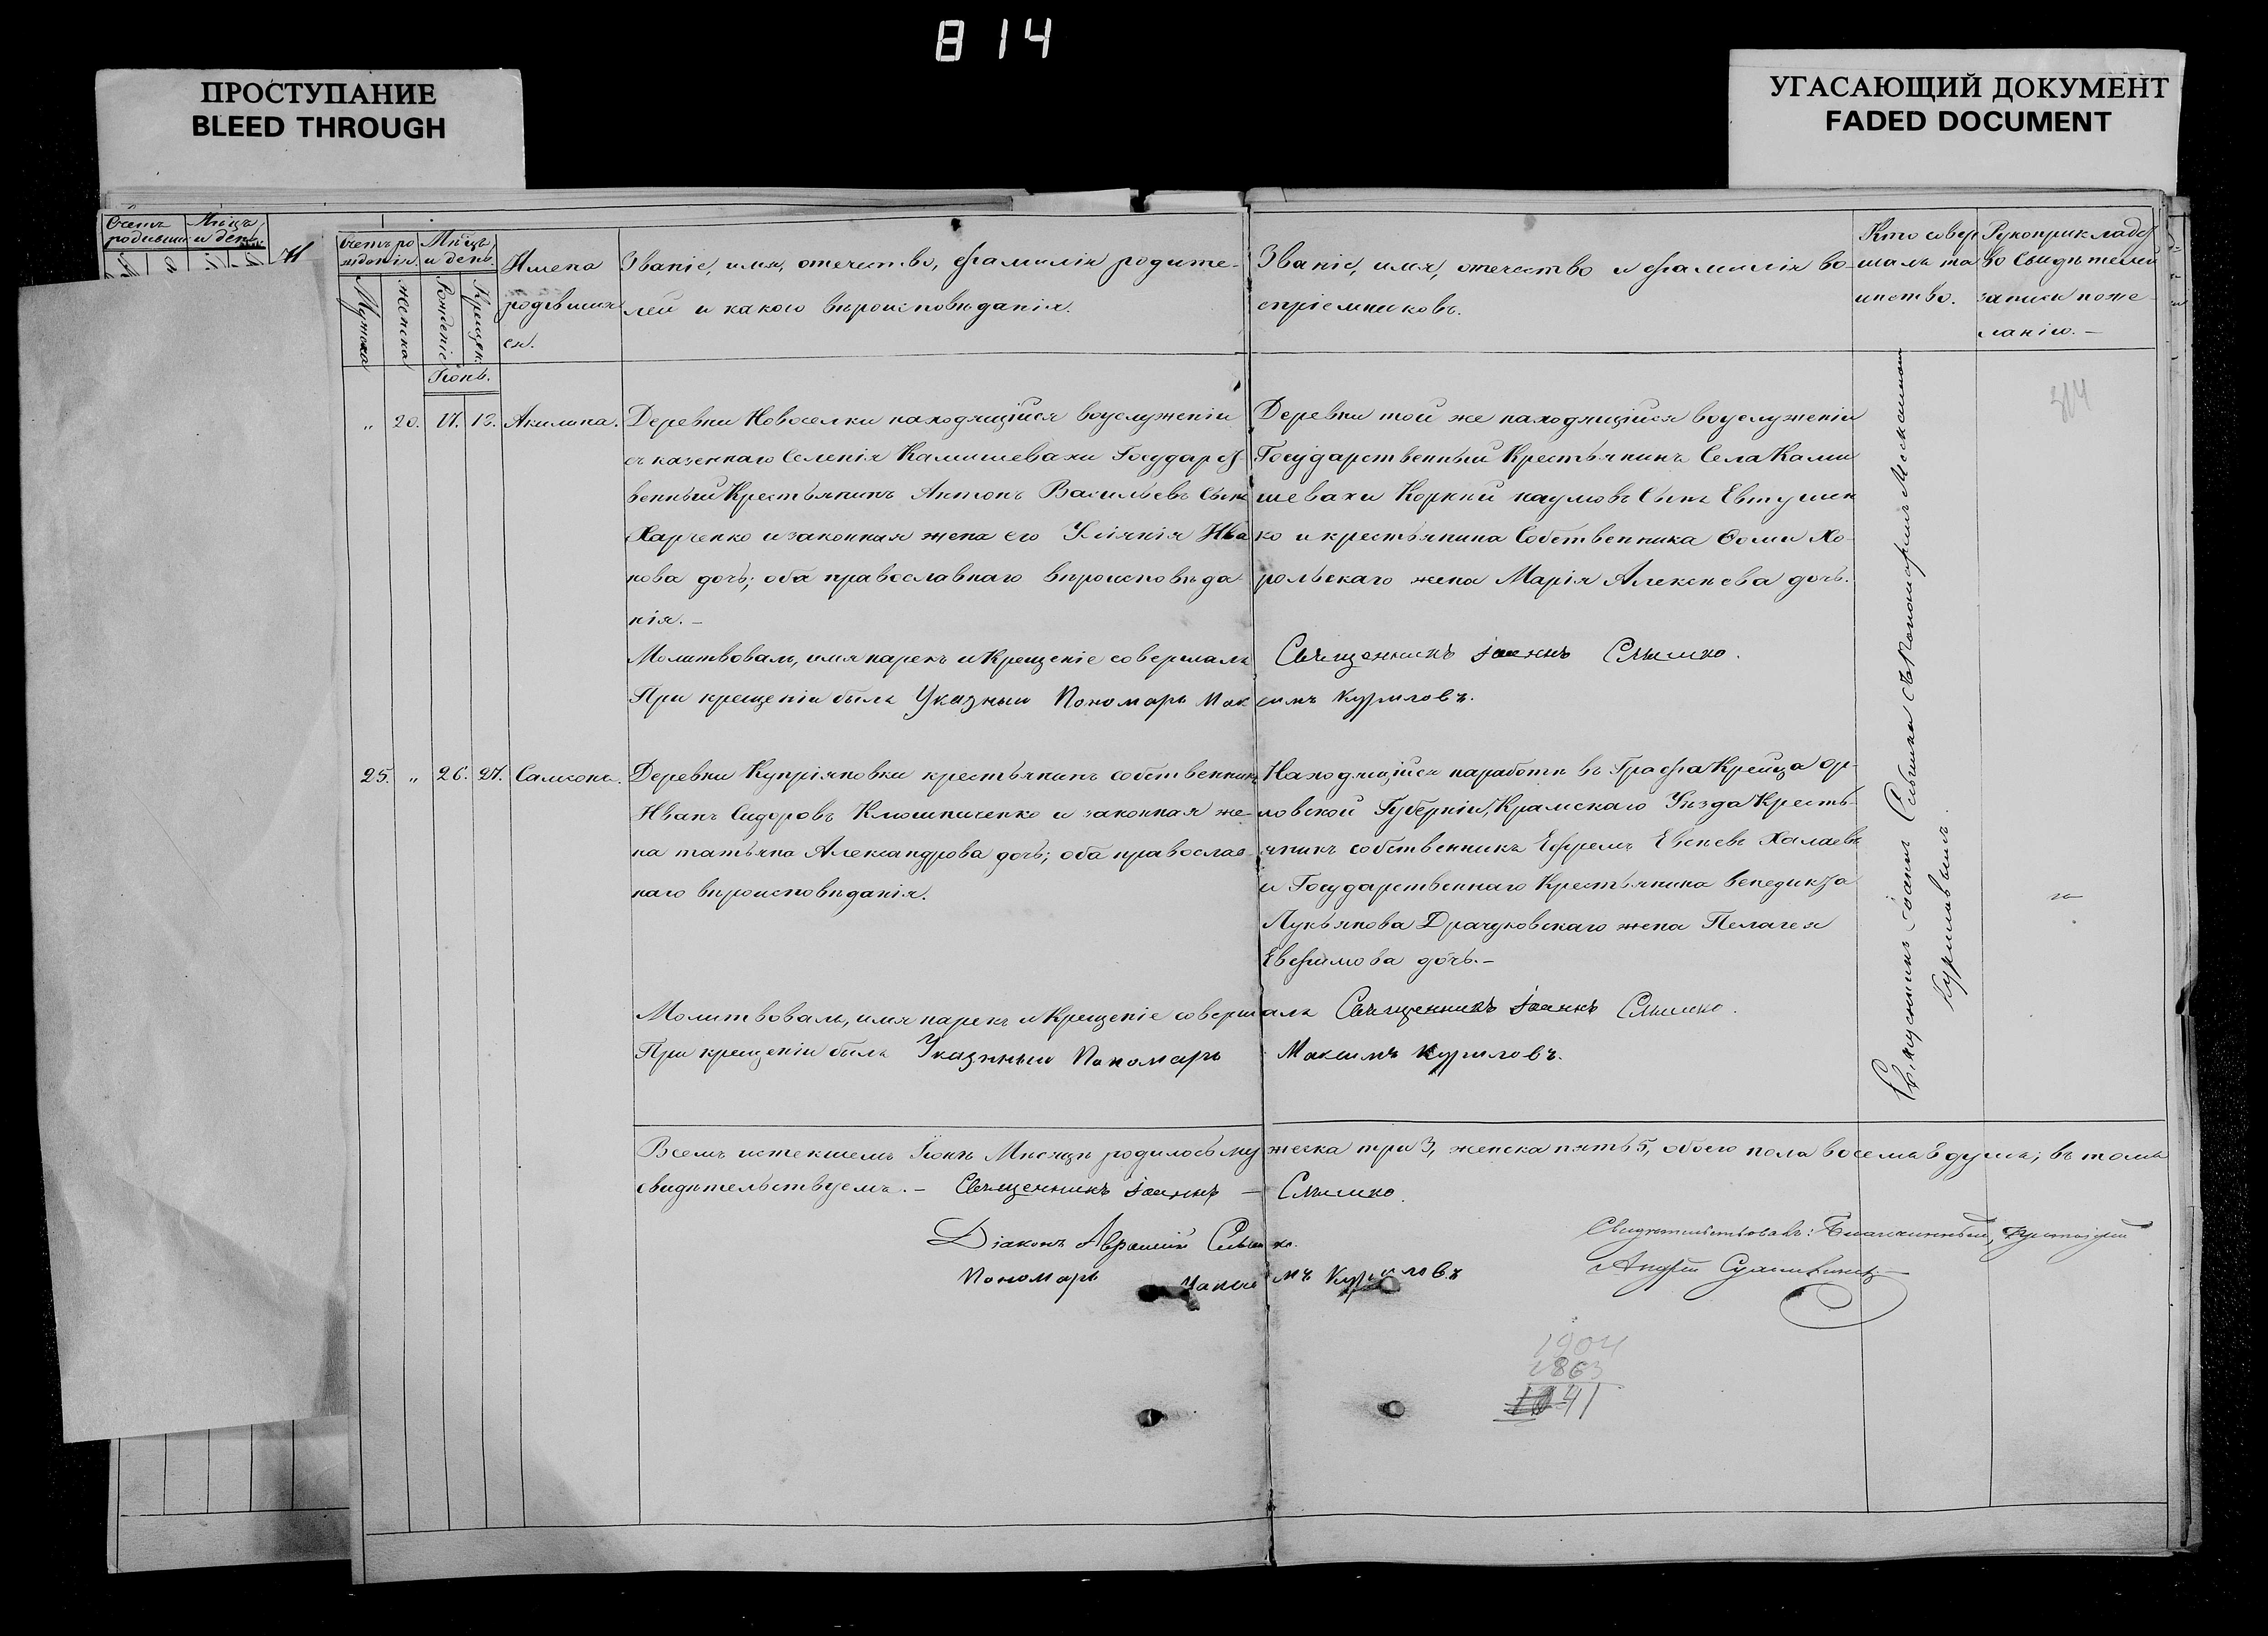 814
ПРОСТУПАНИЕ
BLEED THROUGH
УГАСАЮЩИЙ ДОКУМЕНТ
FADED DOCUMENT
Счетъ родивши
Мѣцъ и день
Счетъ рожденія.
Мѣцъ и день.
Имена родившихся.
Званіе, имя, отечество, фамилія родите-
лей и какого вѣроисповѣданія.
Званіе, имя, отечество и фамилія во-
спріемниковъ.
Кто совершалъ таинство.
Рукоприкладство свидѣтелей записи по желанію.
Мужска
Женска
Рожденіе
Крещен.
Іюнь.
314
„ 20. 11. 13. Акилина.
Деревни Новоселки находящійся воуслуженіи
съ казеннаго Селенія Камишевахи Государст-
венный Крестьянинъ Антонъ Васильевъ Сынъ
Харченко и законная жена его Уліянія Ива
нова дочь; оба православнаго вѣроисповѣда-
нія.—
Деревни той же находящійся воуслуженіи
Государственный Крестьянинъ Села Ками
шевахи Корній наумовъ Сынъ Евтушен
ко и крестьянина Собственника Ѳоми Хо-
рольскаго жена Марія Алексѣева дочь.
Молитвовалъ, имя нарекъ и Крещеніе совершалъ Священникъ Іоаннъ Слышко.
При крещеніи былъ Указный Пономарь Максимъ Куриловъ.
25. „ 26. 27. Самсонъ.
Деревни Купріяновки крестьянинъ собственникъ
Иванъ Сидоровъ Клюшниченко и законная же-
на татьяна Александрова дочь; оба православ-
наго вѣроисповѣданія.
Находящійся наработѣ въ Графа Крейца Ор-
ловской Губерніи, Крамскаго Уѣзда Кресть-
янинъ собственникъ Ефремъ Евсѣевъ Халаевъ
и Государственнаго Крестьянина венедикта
Лукьянова Драчуковскаго жена Пелагея
Евфимова дочь.—
Молитвовалъ, имя нарекъ и Крещеніе совершалъ Священникъ Іоаннъ Слышко.
При крещеніи былъ Указный Пономарь Максимъ Куриловъ.
Священникъ Іоаннъ Слышко съ Пономаремъ Максимомъ
Куриловымъ.
Всемъ истекшемъ Іюнѣ Мѣсяцѣ родилось мужеска три 3, женска пять 5, обоего пола восемь 8 душъ; въ томъ
свидѣтельствуемъ.— Священникъ Іоаннъ — Слышко.
Діаконъ Аврамій
Пономарь Максимъ Куриловъ
Свидѣтельствовалъ: Благочинный, Протоіерей
Андрей
1904
1863
41